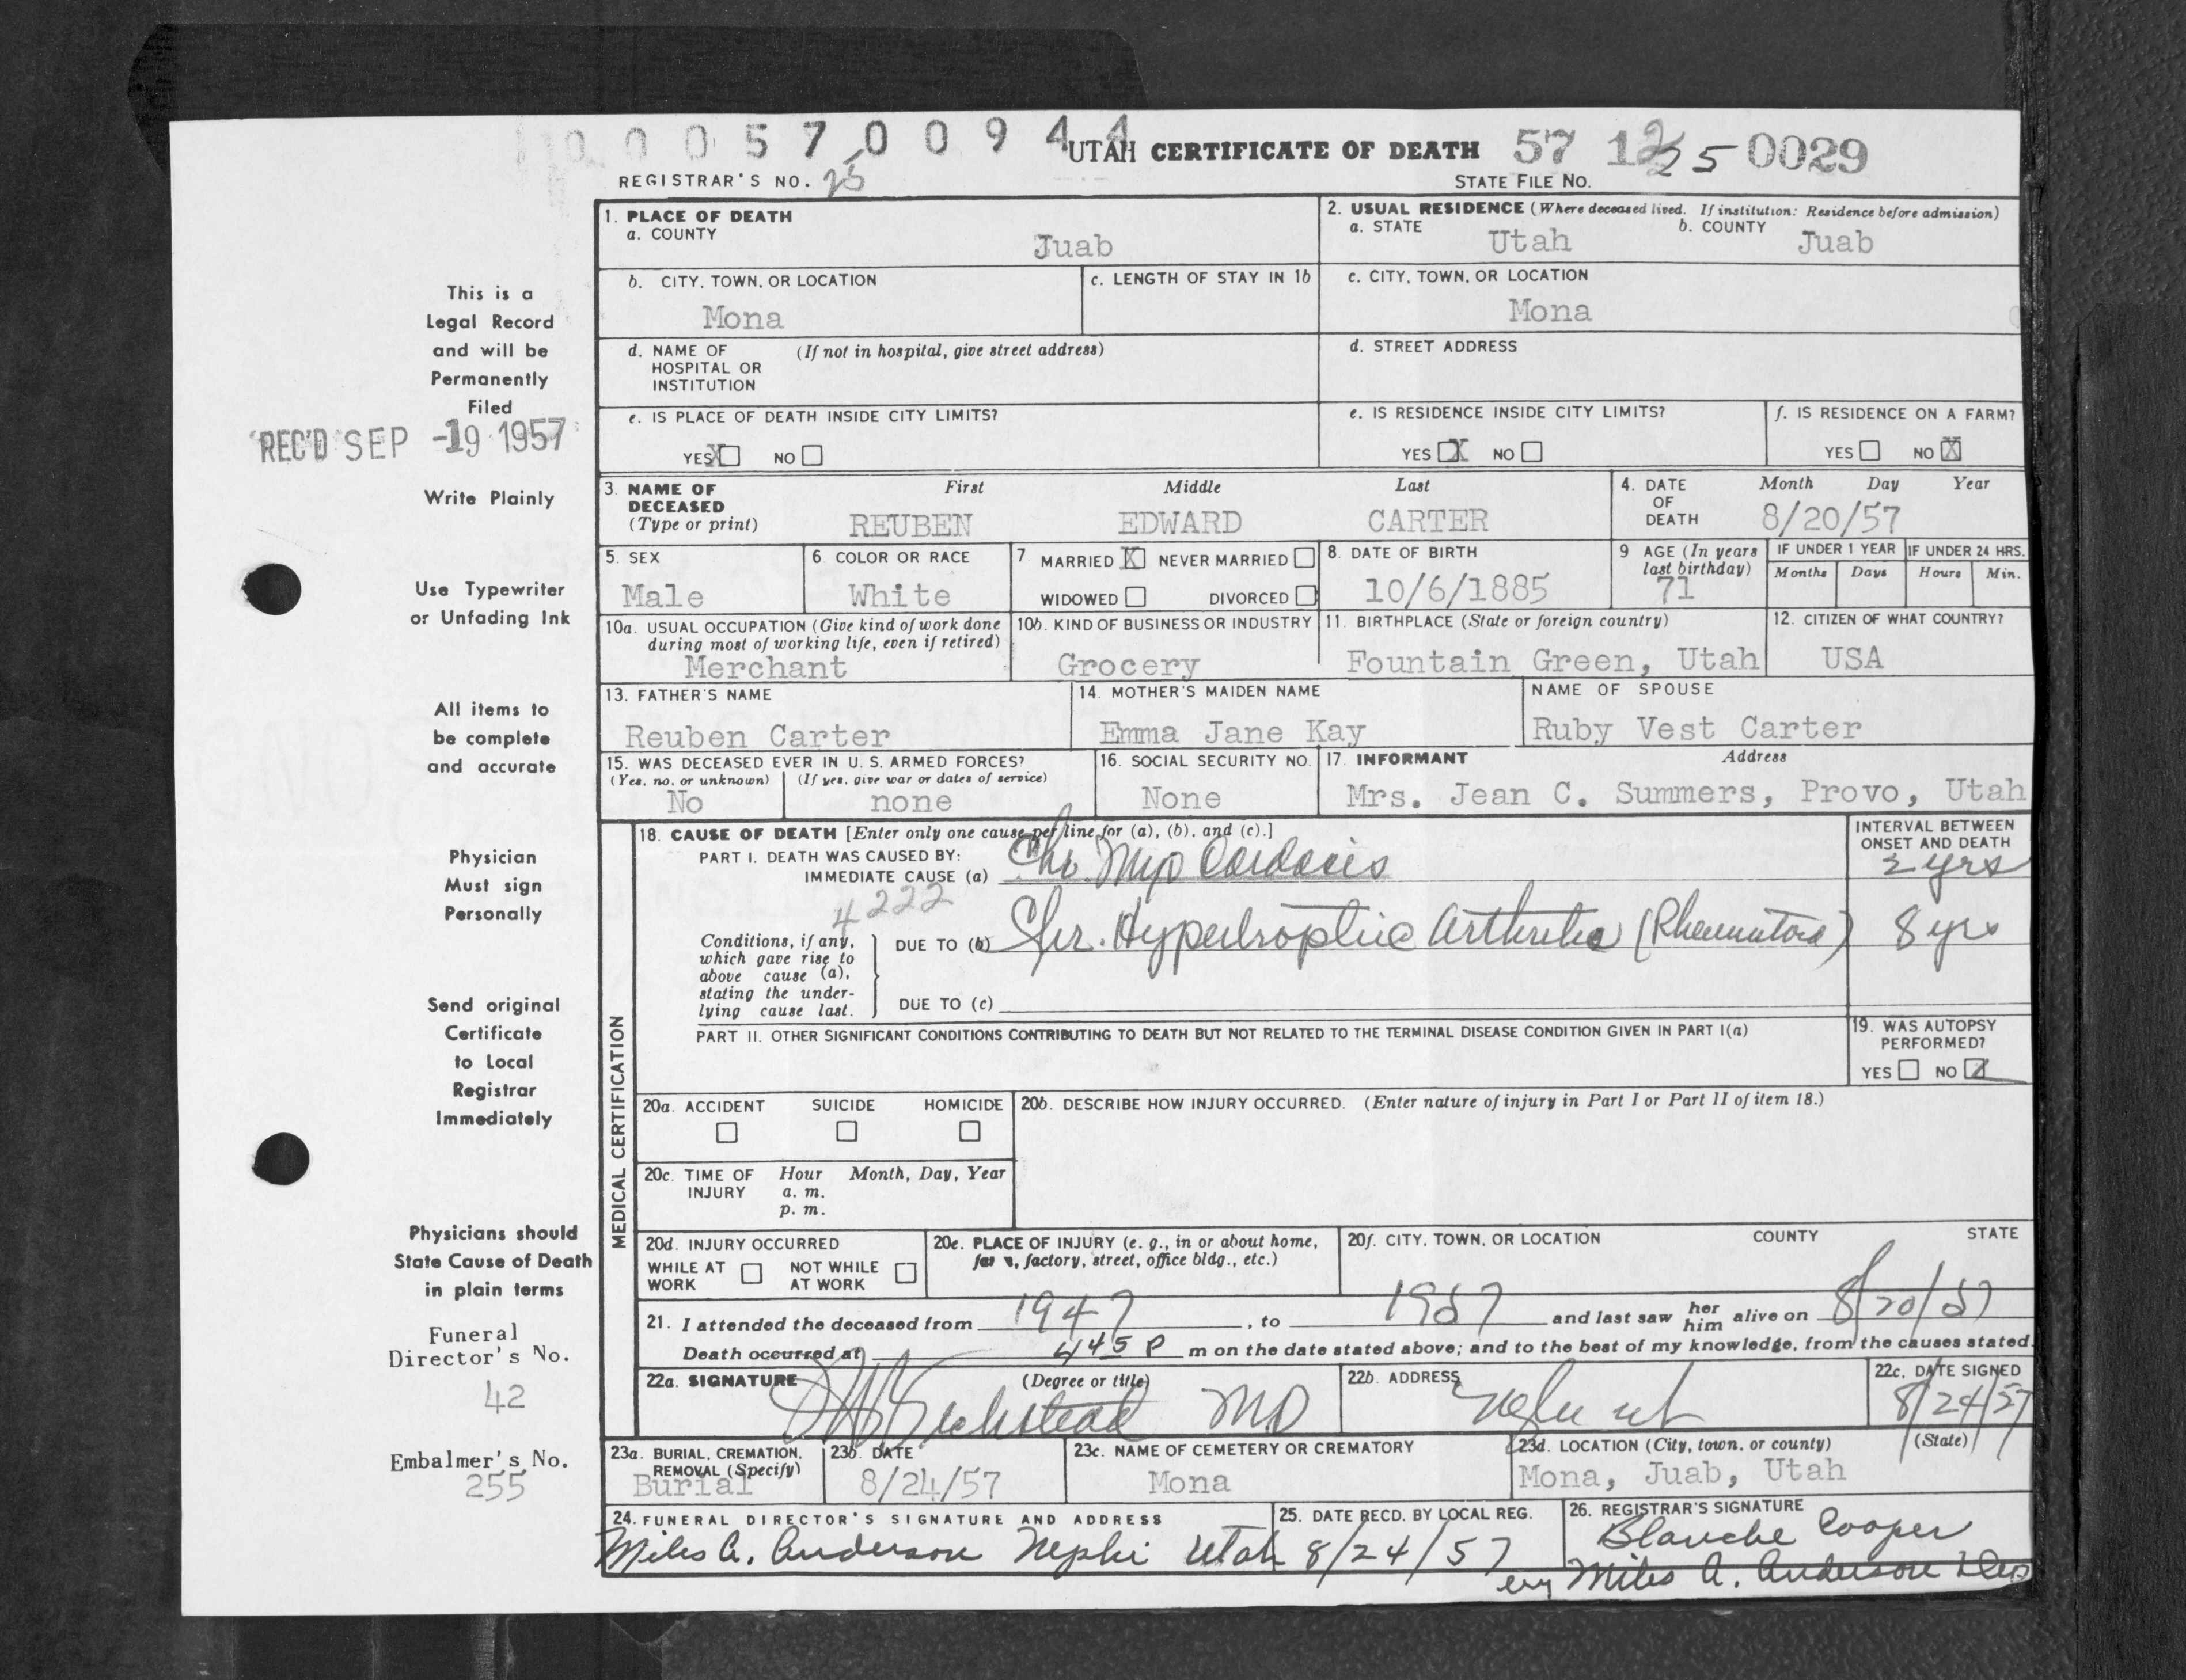 0 0 0 5 7 0 0 9 4 4
UTAH CERTIFICATE OF DEATH 57 12 25 0029
REGISTRAR'S NO. 25
STATE FILE NO.
1. PLACE OF DEATH
a. COUNTY
Juab
2. USUAL RESIDENCE (Where deceased lived. If institution: Residence before admission)
a. STATE Utah b. COUNTY Juab
b. CITY, TOWN, OR LOCATION
Mona
c. LENGTH OF STAY IN 1b
c. CITY, TOWN, OR LOCATION
Mona
d. NAME OF HOSPITAL OR INSTITUTION (If not in hospital, give street address)
d. STREET ADDRESS
e. IS PLACE OF DEATH INSIDE CITY LIMITS?
YES X NO
e. IS RESIDENCE INSIDE CITY LIMITS?
YES X NO
f. IS RESIDENCE ON A FARM?
YES NO X
3. NAME OF DECEASED (Type or print)
First Middle Last
REUBEN EDWARD CARTER
4. DATE OF DEATH
Month Day Year
8/20/57
5. SEX
Male
6 COLOR OR RACE
White
7 MARRIED X NEVER MARRIED
WIDOWED DIVORCED
8. DATE OF BIRTH
10/6/1885
9 AGE (In years last birthday)
71
IF UNDER 1 YEAR
Months Days
IF UNDER 24 HRS.
Hours Min.
10a. USUAL OCCUPATION (Give kind of work done during most of working life, even if retired)
Merchant
10b. KIND OF BUSINESS OR INDUSTRY
Grocery
11. BIRTHPLACE (State or foreign country)
Fountain Green, Utah
12. CITIZEN OF WHAT COUNTRY?
USA
13. FATHER'S NAME
Reuben Carter
14. MOTHER'S MAIDEN NAME
Emma Jane Kay
NAME OF SPOUSE
Ruby Vest Carter
15. WAS DECEASED EVER IN U. S. ARMED FORCES?
(Yes, no, or unknown) (If yes, give war or dates of service)
No none
16. SOCIAL SECURITY NO.
None
17. INFORMANT Address
Mrs. Jean C. Summers, Provo, Utah
MEDICAL CERTIFICATION
18. CAUSE OF DEATH [Enter only one cause per line for (a), (b), and (c).]
PART I. DEATH WAS CAUSED BY:
IMMEDIATE CAUSE (a) Chr Myo Cardosis
4222
INTERVAL BETWEEN ONSET AND DEATH
2 yrs
Conditions, if any, which gave rise to above cause (a), stating the underlying cause last.
DUE TO (b) Chr. Hypertrophic Arthritis (Rheumatoid) 8 yrs
DUE TO (c)
PART II. OTHER SIGNIFICANT CONDITIONS CONTRIBUTING TO DEATH BUT NOT RELATED TO THE TERMINAL DISEASE CONDITION GIVEN IN PART I(a)
19. WAS AUTOPSY PERFORMED?
YES NO
20a. ACCIDENT SUICIDE HOMICIDE
20b. DESCRIBE HOW INJURY OCCURRED. (Enter nature of injury in Part I or Part II of item 18.)
20c. TIME OF INJURY Hour Month, Day, Year
a. m.
p. m.
20d. INJURY OCCURRED
WHILE AT WORK NOT WHILE AT WORK
20e. PLACE OF INJURY (e. g., in or about home, farm, factory, street, office bldg., etc.)
20f. CITY, TOWN, OR LOCATION COUNTY STATE
21. I attended the deceased from 1947, to 1957 and last saw her him alive on 8/20/57
Death occurred at 445 P m on the date stated above; and to the best of my knowledge, from the causes stated.
22a. SIGNATURE (Degree or title)
Beckstead MD
22b. ADDRESS
Nephi ut
22c. DATE SIGNED
8/24/57
23a. BURIAL, CREMATION, REMOVAL (Specify)
Burial
23b. DATE
8/24/57
23c. NAME OF CEMETERY OR CREMATORY
Mona
23d. LOCATION (City, town, or county) (State)
Mona, Juab, Utah
24. FUNERAL DIRECTOR'S SIGNATURE AND ADDRESS
Miles A. Anderson Nephi Utah
25. DATE RECD. BY LOCAL REG.
8/24/57
26. REGISTRAR'S SIGNATURE
Blanche Cooper
by Miles A. Anderson Dep
This is a
Legal Record
and will be
Permanently
Filed
REC'D SEP -19 1957
Write Plainly
Use Typewriter
or Unfading Ink
All items to
be complete
and accurate
Physician
Must sign
Personally
Send original
Certificate
to Local
Registrar
Immediately
Physicians should
State Cause of Death
in plain terms
Funeral
Director's No.
42
Embalmer's No.
255